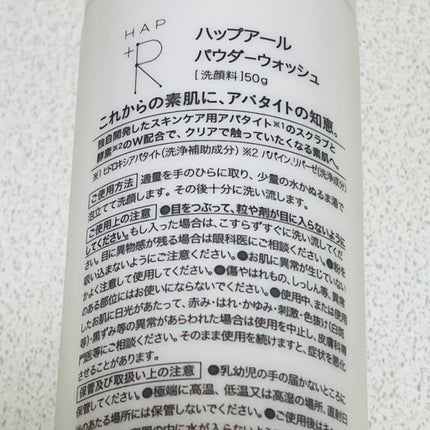 HAP
+R
ハップアール
パウダーウォッシュ
[洗顔料]50g
これからの素肌に、アパタイトの知恵。
独自開発したスキンケア用アパタイト※1のスクラブと
酵素※2のW配合で、クリアで触っていたくなる素肌へ。
※1 ヒドロキシアパタイト(洗浄補助成分) ※2 パパイン、リパーゼ(洗浄成分)
ご使用方法 適量を手のひらに取り、少量の水かぬるま湯で
泡立てて洗顔します。その後十分に洗い流します。
ご使用上の注意 ●目をつぶって、粒や剤が目に入らないように
してください。もし入った場合は、こすらずすぐに洗い流してくだ
さい。目に異物感が残る場合は眼科医にご相談ください。●粉を
吸い込まないようにご注意ください。●お肌に異常が生じていない
かよく注意して使用してください。●傷やはれもの、しっしん等、異常
のある部位にはお使いにならないでください。●使用中、または使用
したお肌に日光があたって、赤み・はれ・かゆみ・刺激・色抜け(白斑
等)・黒ずみ等の異常があらわれた場合は使用を中止し、皮膚科専
門医等にご相談ください。そのまま使用を続けますと、症状を悪化
させることがあります。
保管及び取扱い上の注意 ●乳幼児の手の届かないところに
保管してください。●極端に高温、低温又は高湿の場所、直射日
光のあたる場所には保管しないでください。●ご使用後はき
容器の中に水が入らないよう